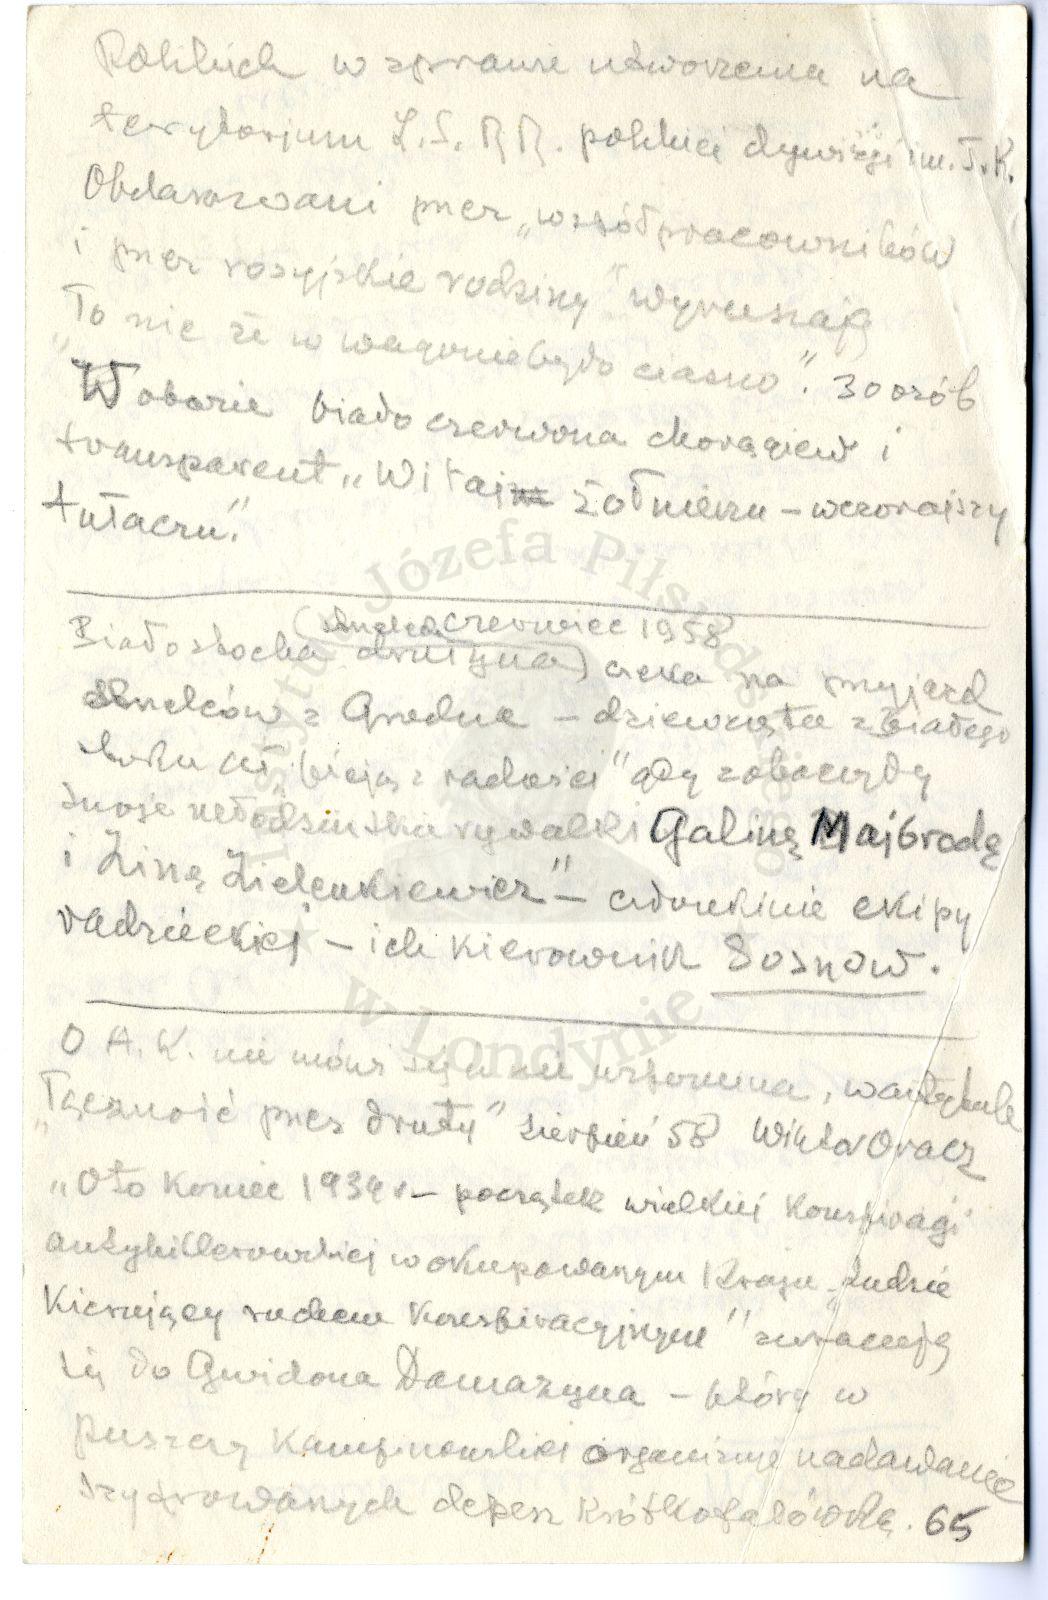 Polskich w sprawie utworzenia na
terytorjum Z.S.R.R. polskiej dywizji im. T.K.
Obdarowani przez „współpracowników
i przez rosyjskie rodziny” wyruszają
„To nic że w wagonie było ciasno”. 30 osób
W oborie biało czerwona chorągiew i
transparent „Witaj żołnierzu – wczorajszy
tułaczu”.
(czerwiec 1958
Białostocka drużyna) czeka na przyjazd
z Grodna – dziewczęta z Białego
stoku aż „bieją z radości” gdy zobaczyły
swoje rywalki Galinę Majbrodę
i Zinę Zielenkiewicz” – członkinie ekipy
radzieckiej – ich kierownik Sosnow.
O A.K. nie mówi się i nie wspomina, w artykule
„Łączność przez druty” sierpień 58 Wiktor Oracz
„Oto koniec 1939 r – początek wielkiej konspiracji
antyhitlerowskiej w okupowanym kraju „Ludzie
kierujący ruchem konspiracyjnym” zwracają
się do Gwidona Damazyna – który w
puszczy Kampinowskiej organizuje nadawanie
szyfrowanych depesz krótkofalówką. 65
Instytut Józefa Piłsudskiego
w Londynie